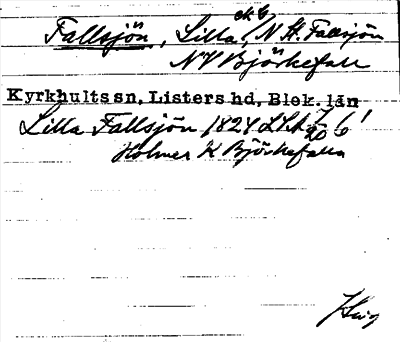 ek 6
Fallsjön, Lilla, N St. Fallsjön
NV Björkefall
Kyrkhults sn, Listers hd, Blek. län
Lilla Fallsjön 1824 LSA
Holmer K Björkefalla